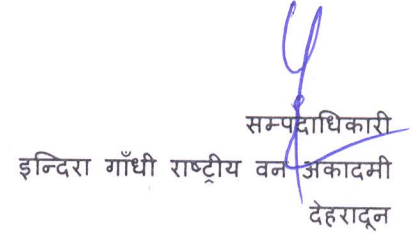 सम्पदाधिकारी
इन्दिरा गाँधी राष्ट्रीय वन अकादमी
देहरादून